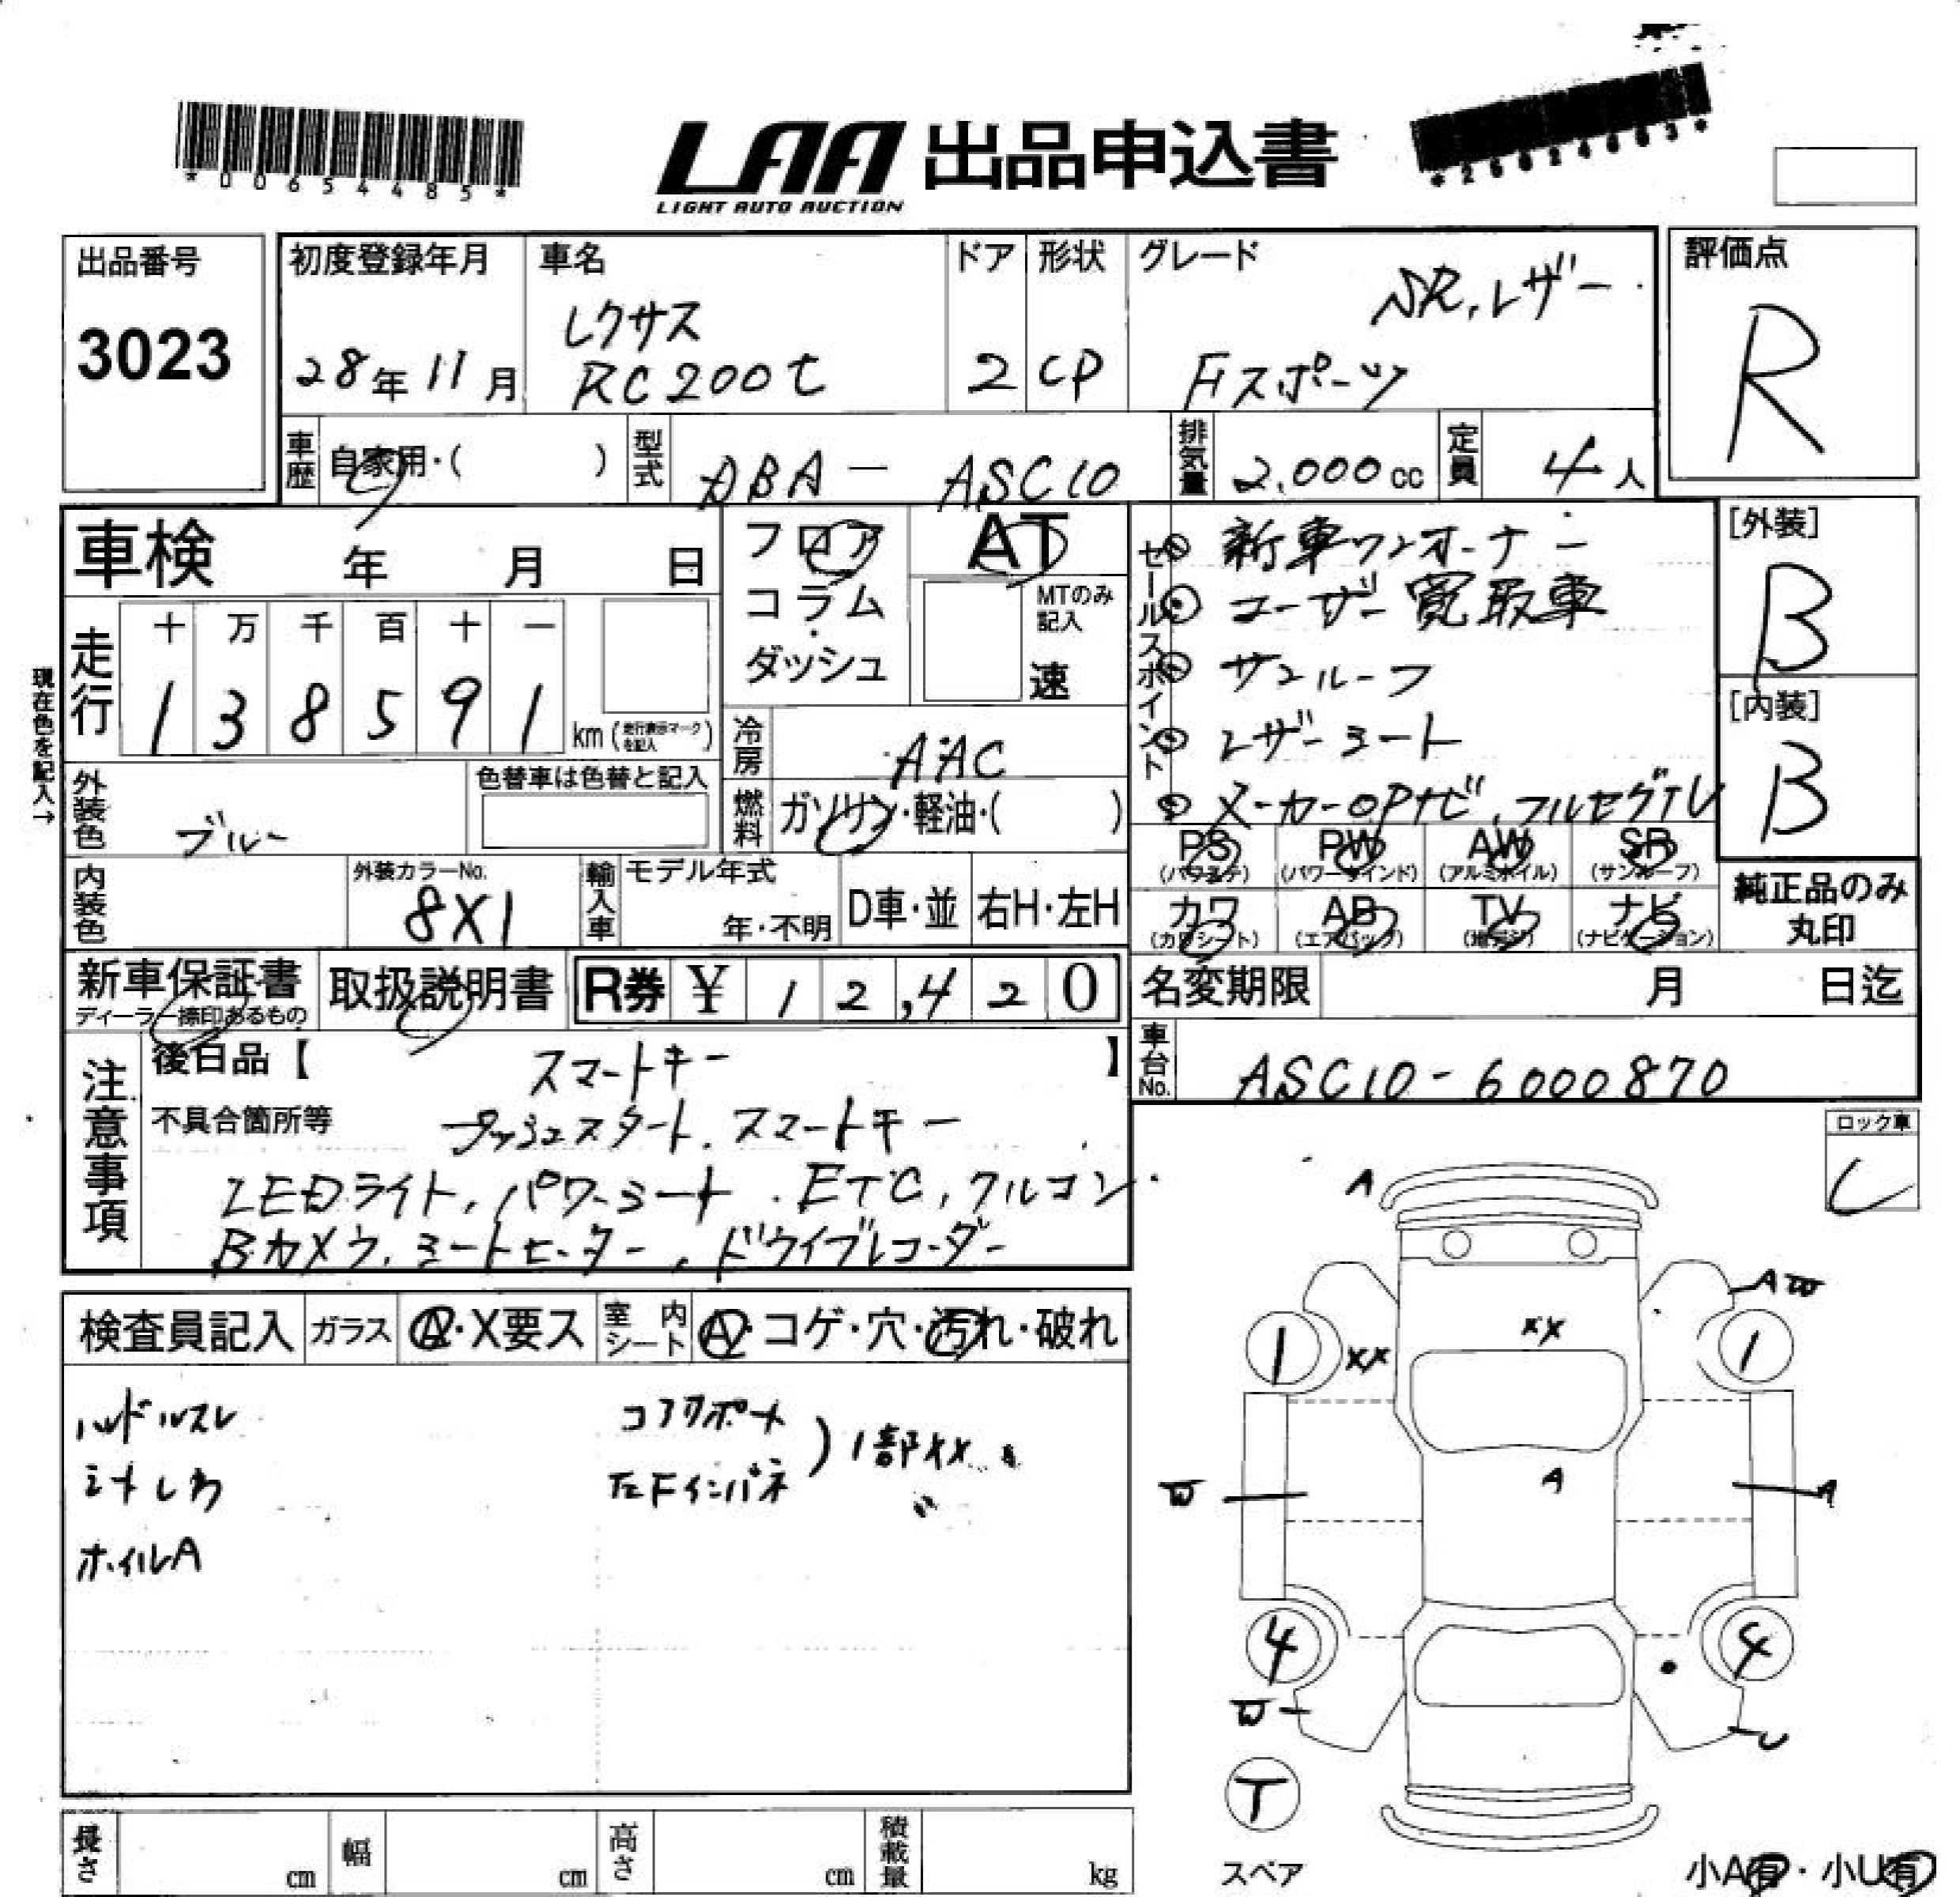 *00654485*
LAA 出品申込書
LIGHT AUTO AUCTION
出品番号
3023
初度登録年月
28年11月
車名
レクサス
RC200t
ドア
2
形状
CP
グレード
SR,レザー
Fスポーツ
評価点
R
車歴
自家用・( )
型式
DBA-ASC10
排気量
2,000cc
定員
4人
車検 年 月 日
フロア
コラム
・
ダッシュ
AT
MTのみ
記入
速
セールスポイント
新車ワンオーナー
ユーザー買取車
サンルーフ
レザーシート
メーカーOPナビ,フルセグTV
[外装]
B
[内装]
B
現在色を記入→
走行
十 万 千 百 十 一
1 3 8 5 9 1
km(走行表示マークを記入)
冷房
AAC
燃料
ガソリン・軽油・( )
外装色
ブルー
色替車は色替と記入
内装色
外装カラーNo.
8X1
輸入車
モデル年式
年・不明
D車・並
右H・左H
PS
(パワステ)
PW
(パワーウインド)
AW
(アルミホイル)
SR
(サンルーフ)
カワ
(カワシート)
AB
(エアバック)
TV
(地デジ)
ナビ
(ナビゲーション)
純正品のみ
丸印
新車保証書
ディーラー捺印あるもの
取扱説明書
R券 ¥ 12,420
名変期限 月 日迄
車台No.
ASC10-6000870
注意事項
後日品【 スマートキー 】
不具合箇所等
プッシュスタート,スマートキー
LEDライト,パワーシート.ETC,クルコン
Bカメラ,シートヒーター,ドライブレコーダー
ロック車
検査員記入
ガラス
A・X要ス
室内シート
A・コゲ・穴・汚れ・破れ
ハンドルスレ
シートしわ
ホイルA
コアサポート
左Fインパネ
)1部XX
A
AW
XX
XX
1
1
A
W
A
4
4
W
U
T
スペア
小A有・小U有
長さ cm
幅 cm
高さ cm
積載量 kg